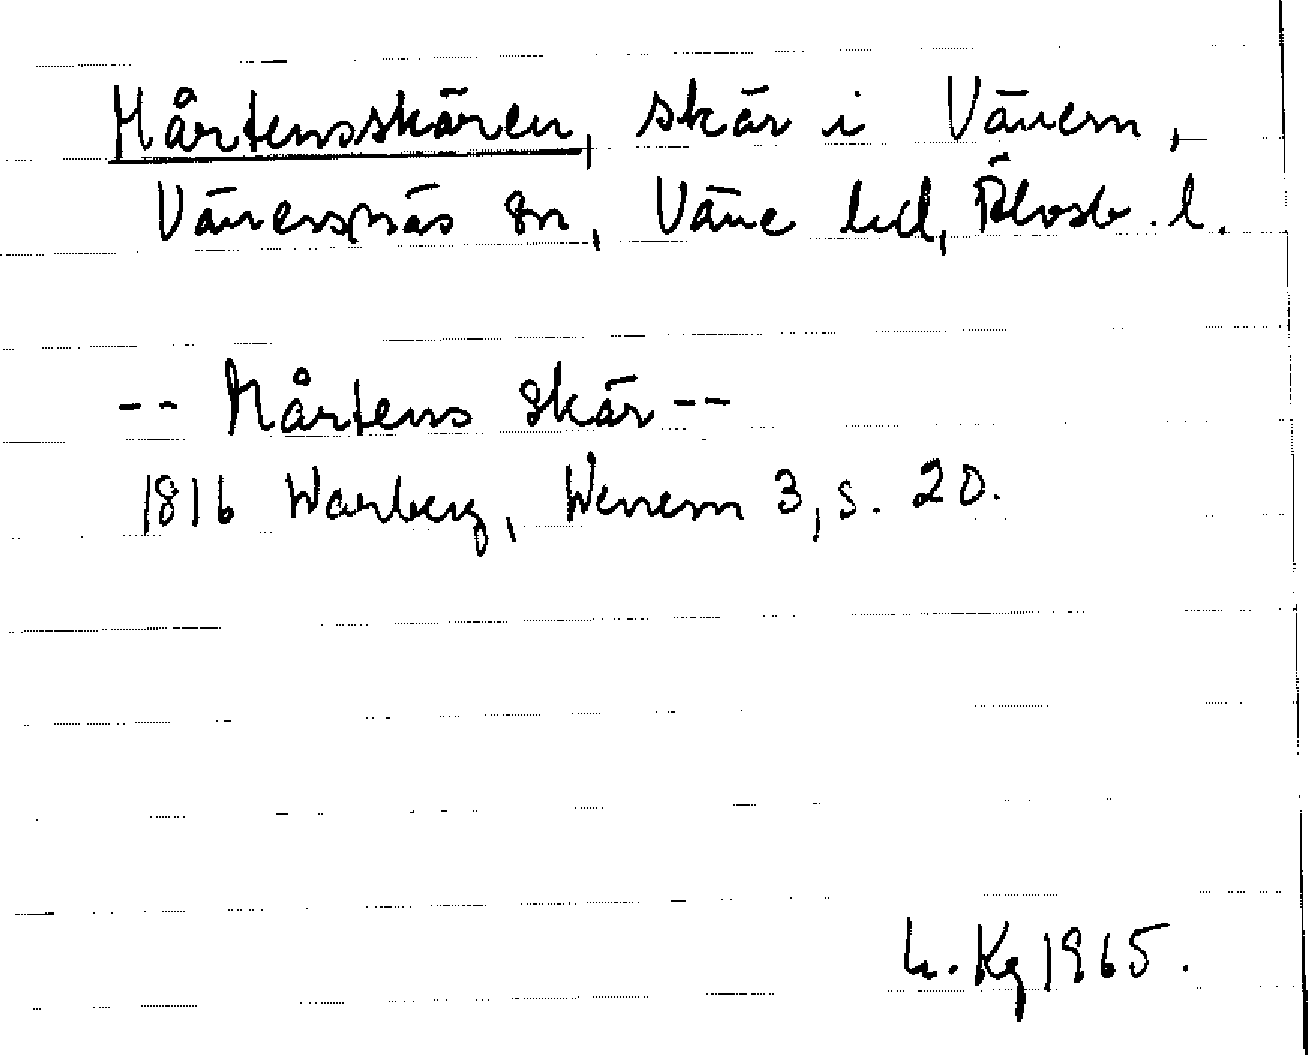 Mårtensskären, skär i Vänern,
Vänersnäs sn, Väne hd, Älvsb. l.
-- Mårtens skär --
1816 Warberg, Wenern 3, s. 20.
L. Kg 1965.